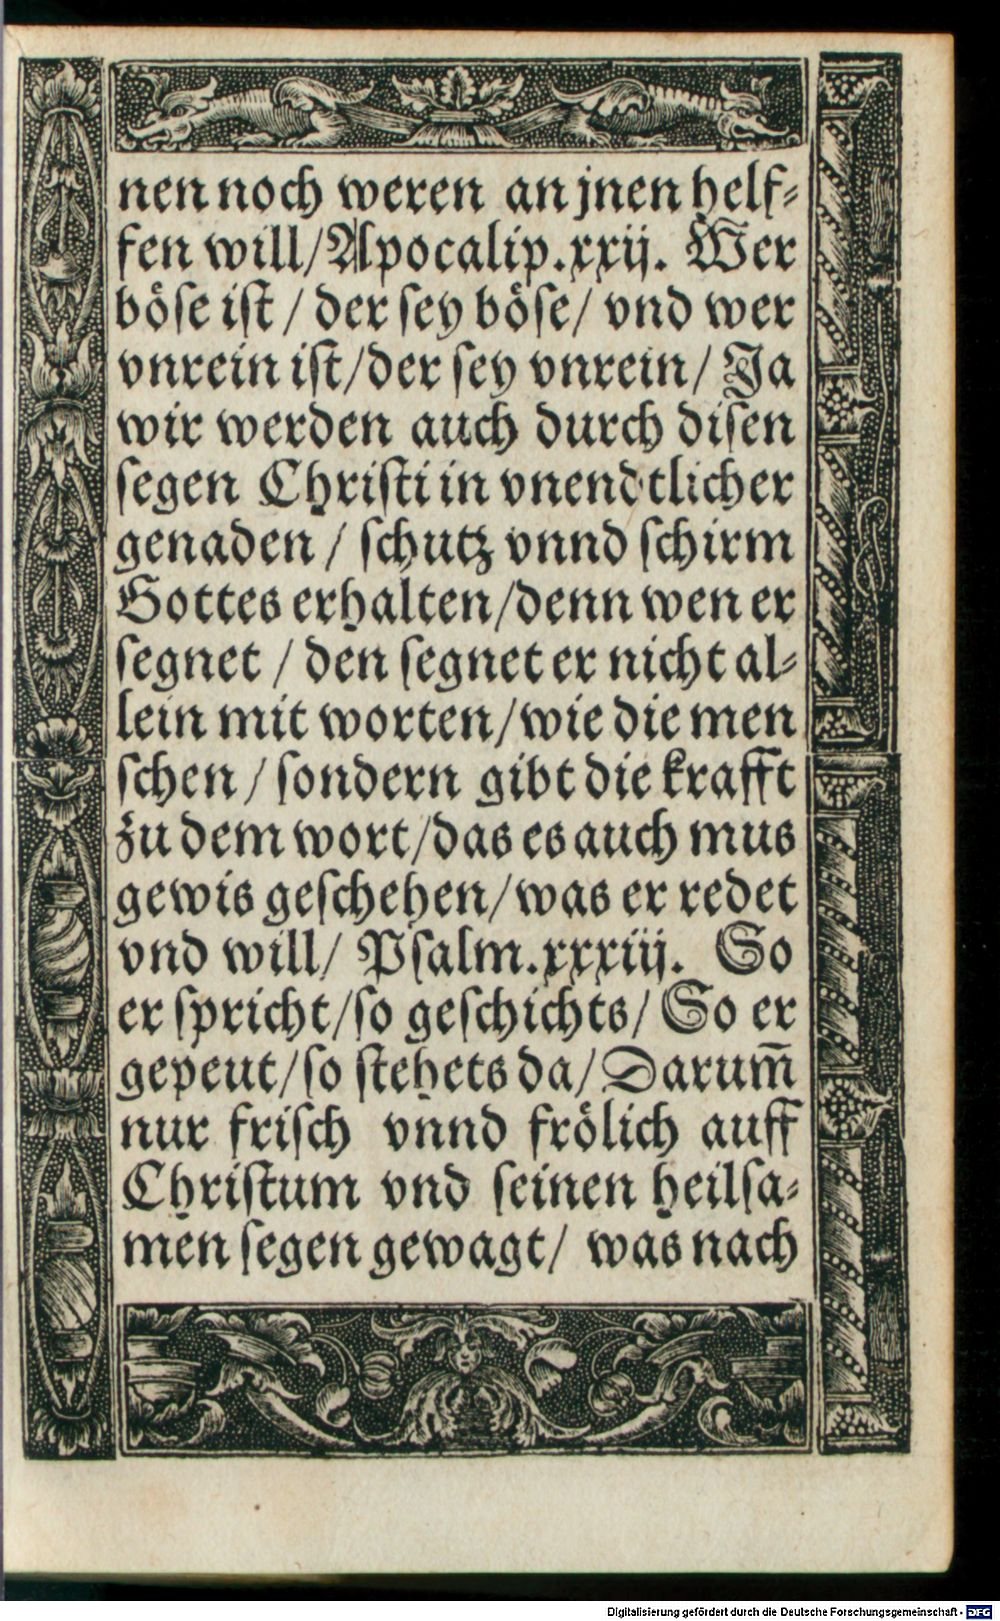 nen noch weren an jnen helf⸗
fen will/ Apocalip.xxij. Wer
böse ist / der sey böse/ vnd wer
vnrein ist/der sey vnrein/ Ja
wir werden auch durch disen
segen Christi in vnendtlicher
genaden / schutz vnnd schirm
Gottes erhalten/denn wen er
segnet / den segnet er nicht al⸗
lein mit worten/wie die men
schen / sondern gibt die krafft
zu dem wort/das es auch mus
gewis geschehen/was er redet
vnd will/ Psalm.xxxiij. So
er spricht/so geschichts/ So er
gepeut/so stehets da/ Darum̄
nur frisch vnnd frölich auff
Christum vnd seinen heilsa⸗
men segen gewagt/ was nach
Digitalisierung gefördert durch die Deutsche Forschungsgemeinschaft - DFG